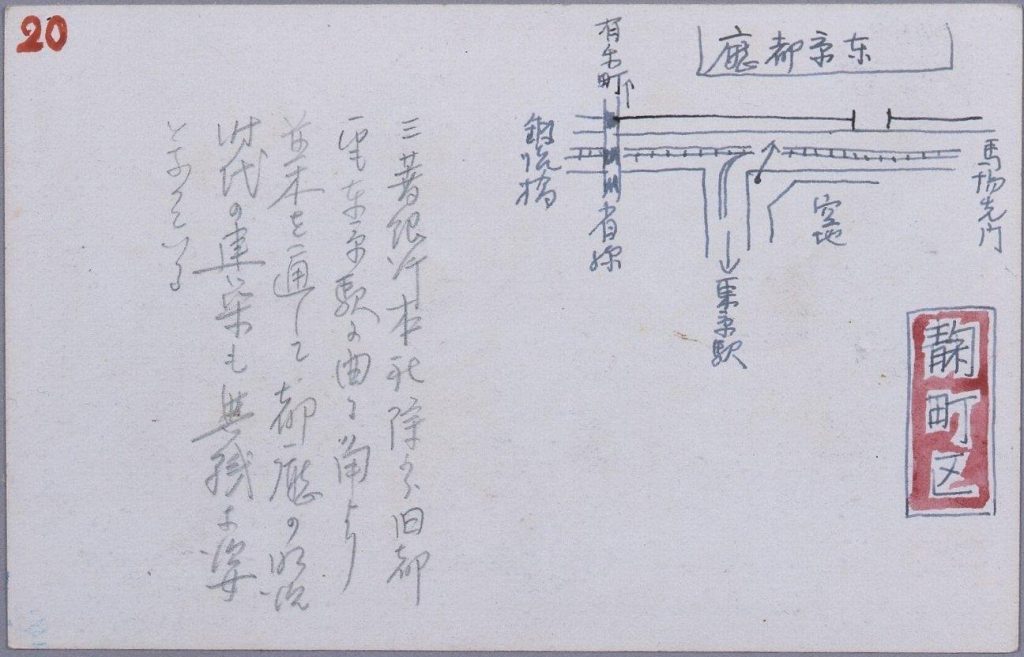 20
東京都廳
有楽町
鍛冶橋
省線
馬場先門
空地
東京駅
麹町区
三菱銀行本社除ク旧都
電東京駅に曲る角より
並木を通して都廳の明治
時代の建築も無残な姿